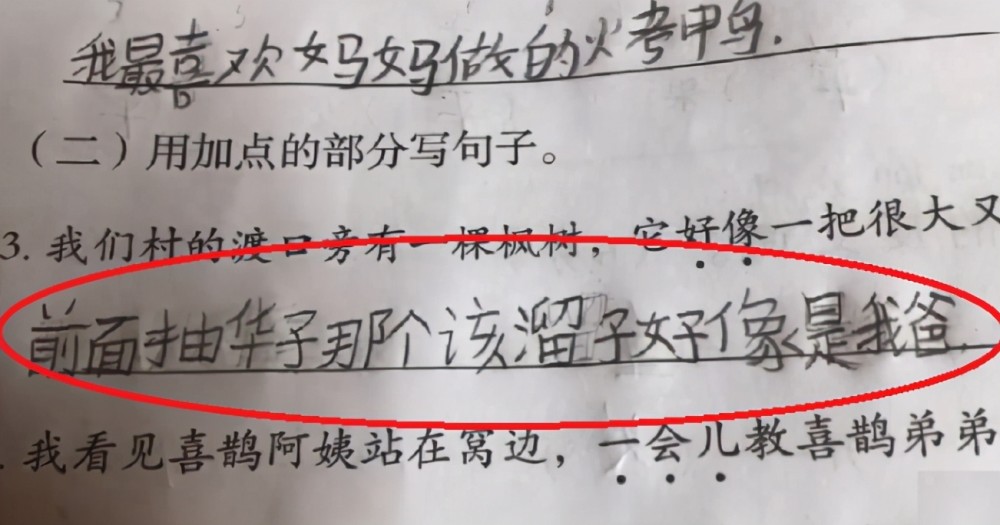 我最喜欢妈妈做的火考甲鸟.
（二）用加点的部分写句子。
3. 我们村的渡口旁有一棵枫树，它好像一把很大又
前面抽华子那个该溜子好像是我爸.
. 我看见喜鹊阿姨站在窝边，一会儿教喜鹊弟弟